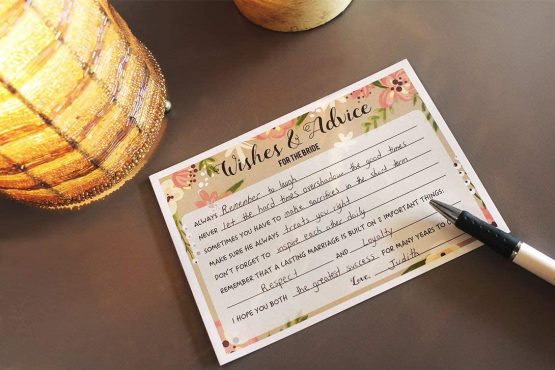 Wishes & Advice
FOR THE BRIDE
ALWAYS Remember to laugh
NEVER let the hard times overshadow the good times
SOMETIMES YOU HAVE TO make sacrifices in the short term
MAKE SURE HE ALWAYS treats you right
DON'T FORGET TO inspire each other daily
REMEMBER THAT A LASTING MARRIAGE IS BUILT ON 2 IMPORTANT THINGS:
Respect AND Loyalty
I HOPE YOU BOTH the greatest success FOR MANY YEARS TO
Love, Judith